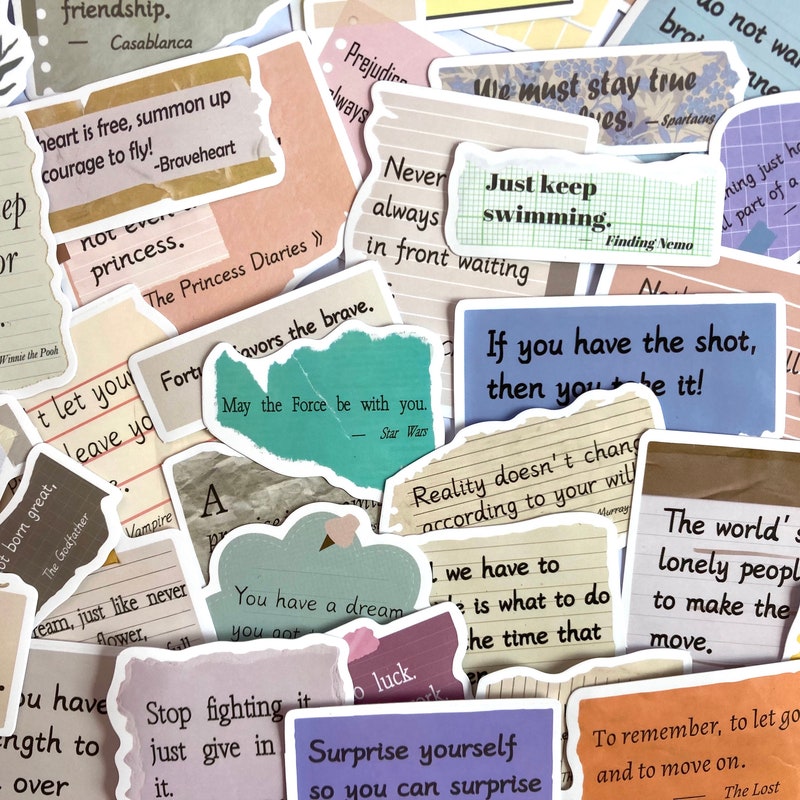 friendship.
— Casablanca
Prejudice
always
do not wan
We must stay true
— Spartacus
heart is free, summon up
courage to fly!
-Braveheart
Never
always
in front waiting
Just keep
swimming.
— Finding Nemo
ning just ha
ll part of a
ep
or
.
Winnie the Pooh
not even
princess.
The Princess Diaries »
Fort avors the brave.
May the Force be with you.
— Star Wars
If you have the shot,
then you take it!
t let your
leave yo
Vampire
A
Reality doesn't chang
according to your will
Murray
ot born great,
The Godfather
The world's
lonely peopl
to make the
move.
we have to
e is what to do
the time that
You have a dream
you got
ream, just like never
flower,
full
o luck.
ork.
ou have
ngth to
over
Stop fighting it
just give in
it.
Surprise yourself
so you can surprise
To remember, to let go
and to move on.
— The Lost